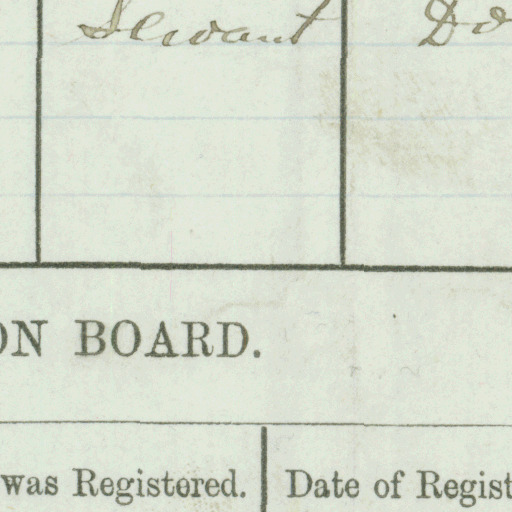 Servant Do
ON BOARD.
was Registered. Date of Regist